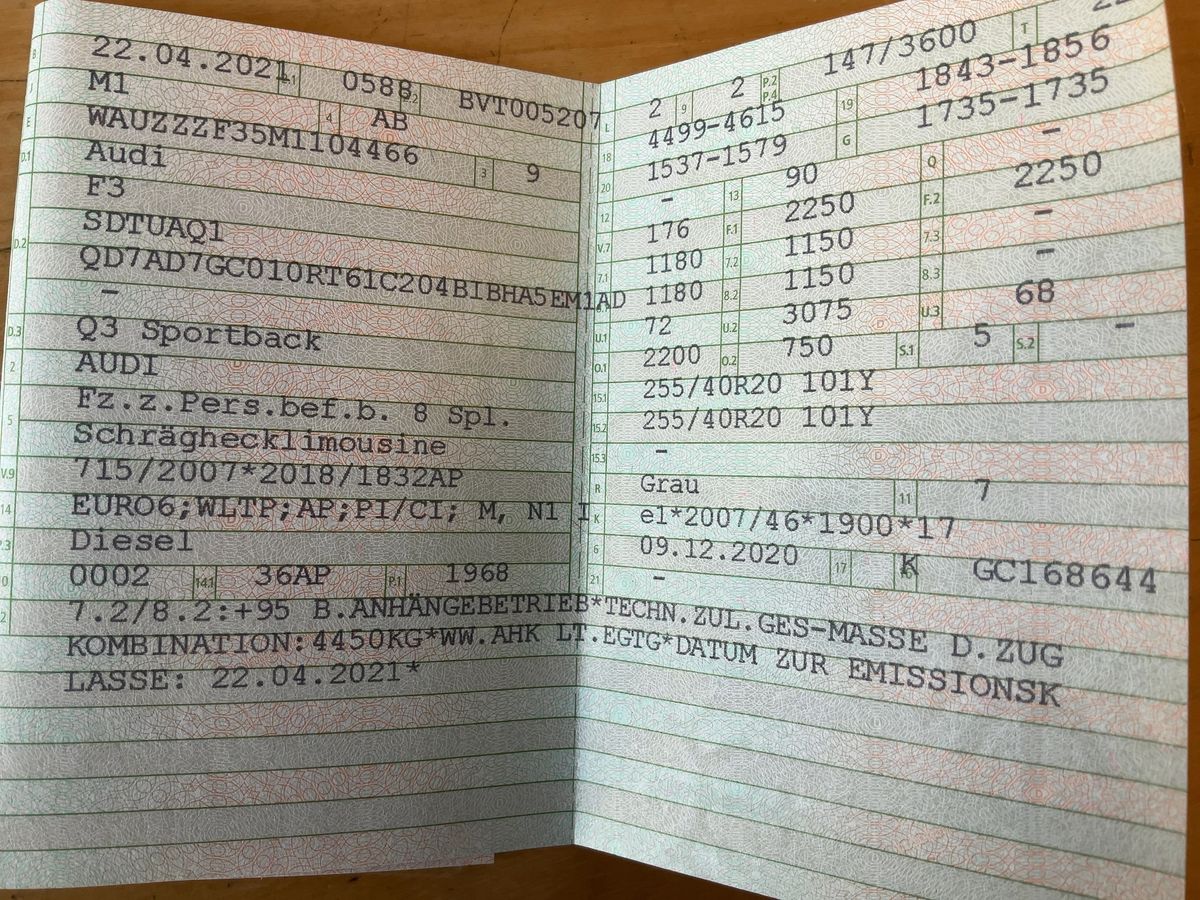 B 22.04.2021 2.1 0588 2.2 BVT005207
J M1 4 AB
E WAUZZZF35M1104466 3 9
D.1 Audi
F3
D.2 SDTUAQ1
QD7AD7GC010RT61C204BIBHA5EM1AD
–
D.3 Q3 Sportback
2 AUDI
5 Fz.z.Pers.bef.b. 8 Spl.
Schräghecklimousine
V.9 715/2007*2018/1832AP
14 EURO6;WLTP;AP;PI/CI; M, N1 I
P.3 Diesel
10 0002 14.1 36AP P.1 1968
22 7.2/8.2:+95 B.ANHÄNGEBETRIEB*TECHN.ZUL.GES-MASSE D.ZUG
KOMBINATION:4450KG*WW.AHK LT.EGTG*DATUM ZUR EMISSIONSK
LASSE: 22.04.2021*
L 2 9 2 P.2 P.4 147/3600 T
18 4499-4615 19 1843-1856
20 1537-1579 G 1735-1735
12 – 13 90 Q –
V.7 176 F.1 2250 F.2 2250
7.1 1180 7.2 1150 7.3 –
1180 8.2 1150 8.3 –
U.1 72 U.2 3075 U.3 68
O.1 2200 O.2 750 S.1 5 S.2 –
15.1 255/40R20 101Y
15.2 255/40R20 101Y
15.3 –
R Grau 11 7
K e1*2007/46*1900*17
6 09.12.2020 17 K 16 GC168644
21 –